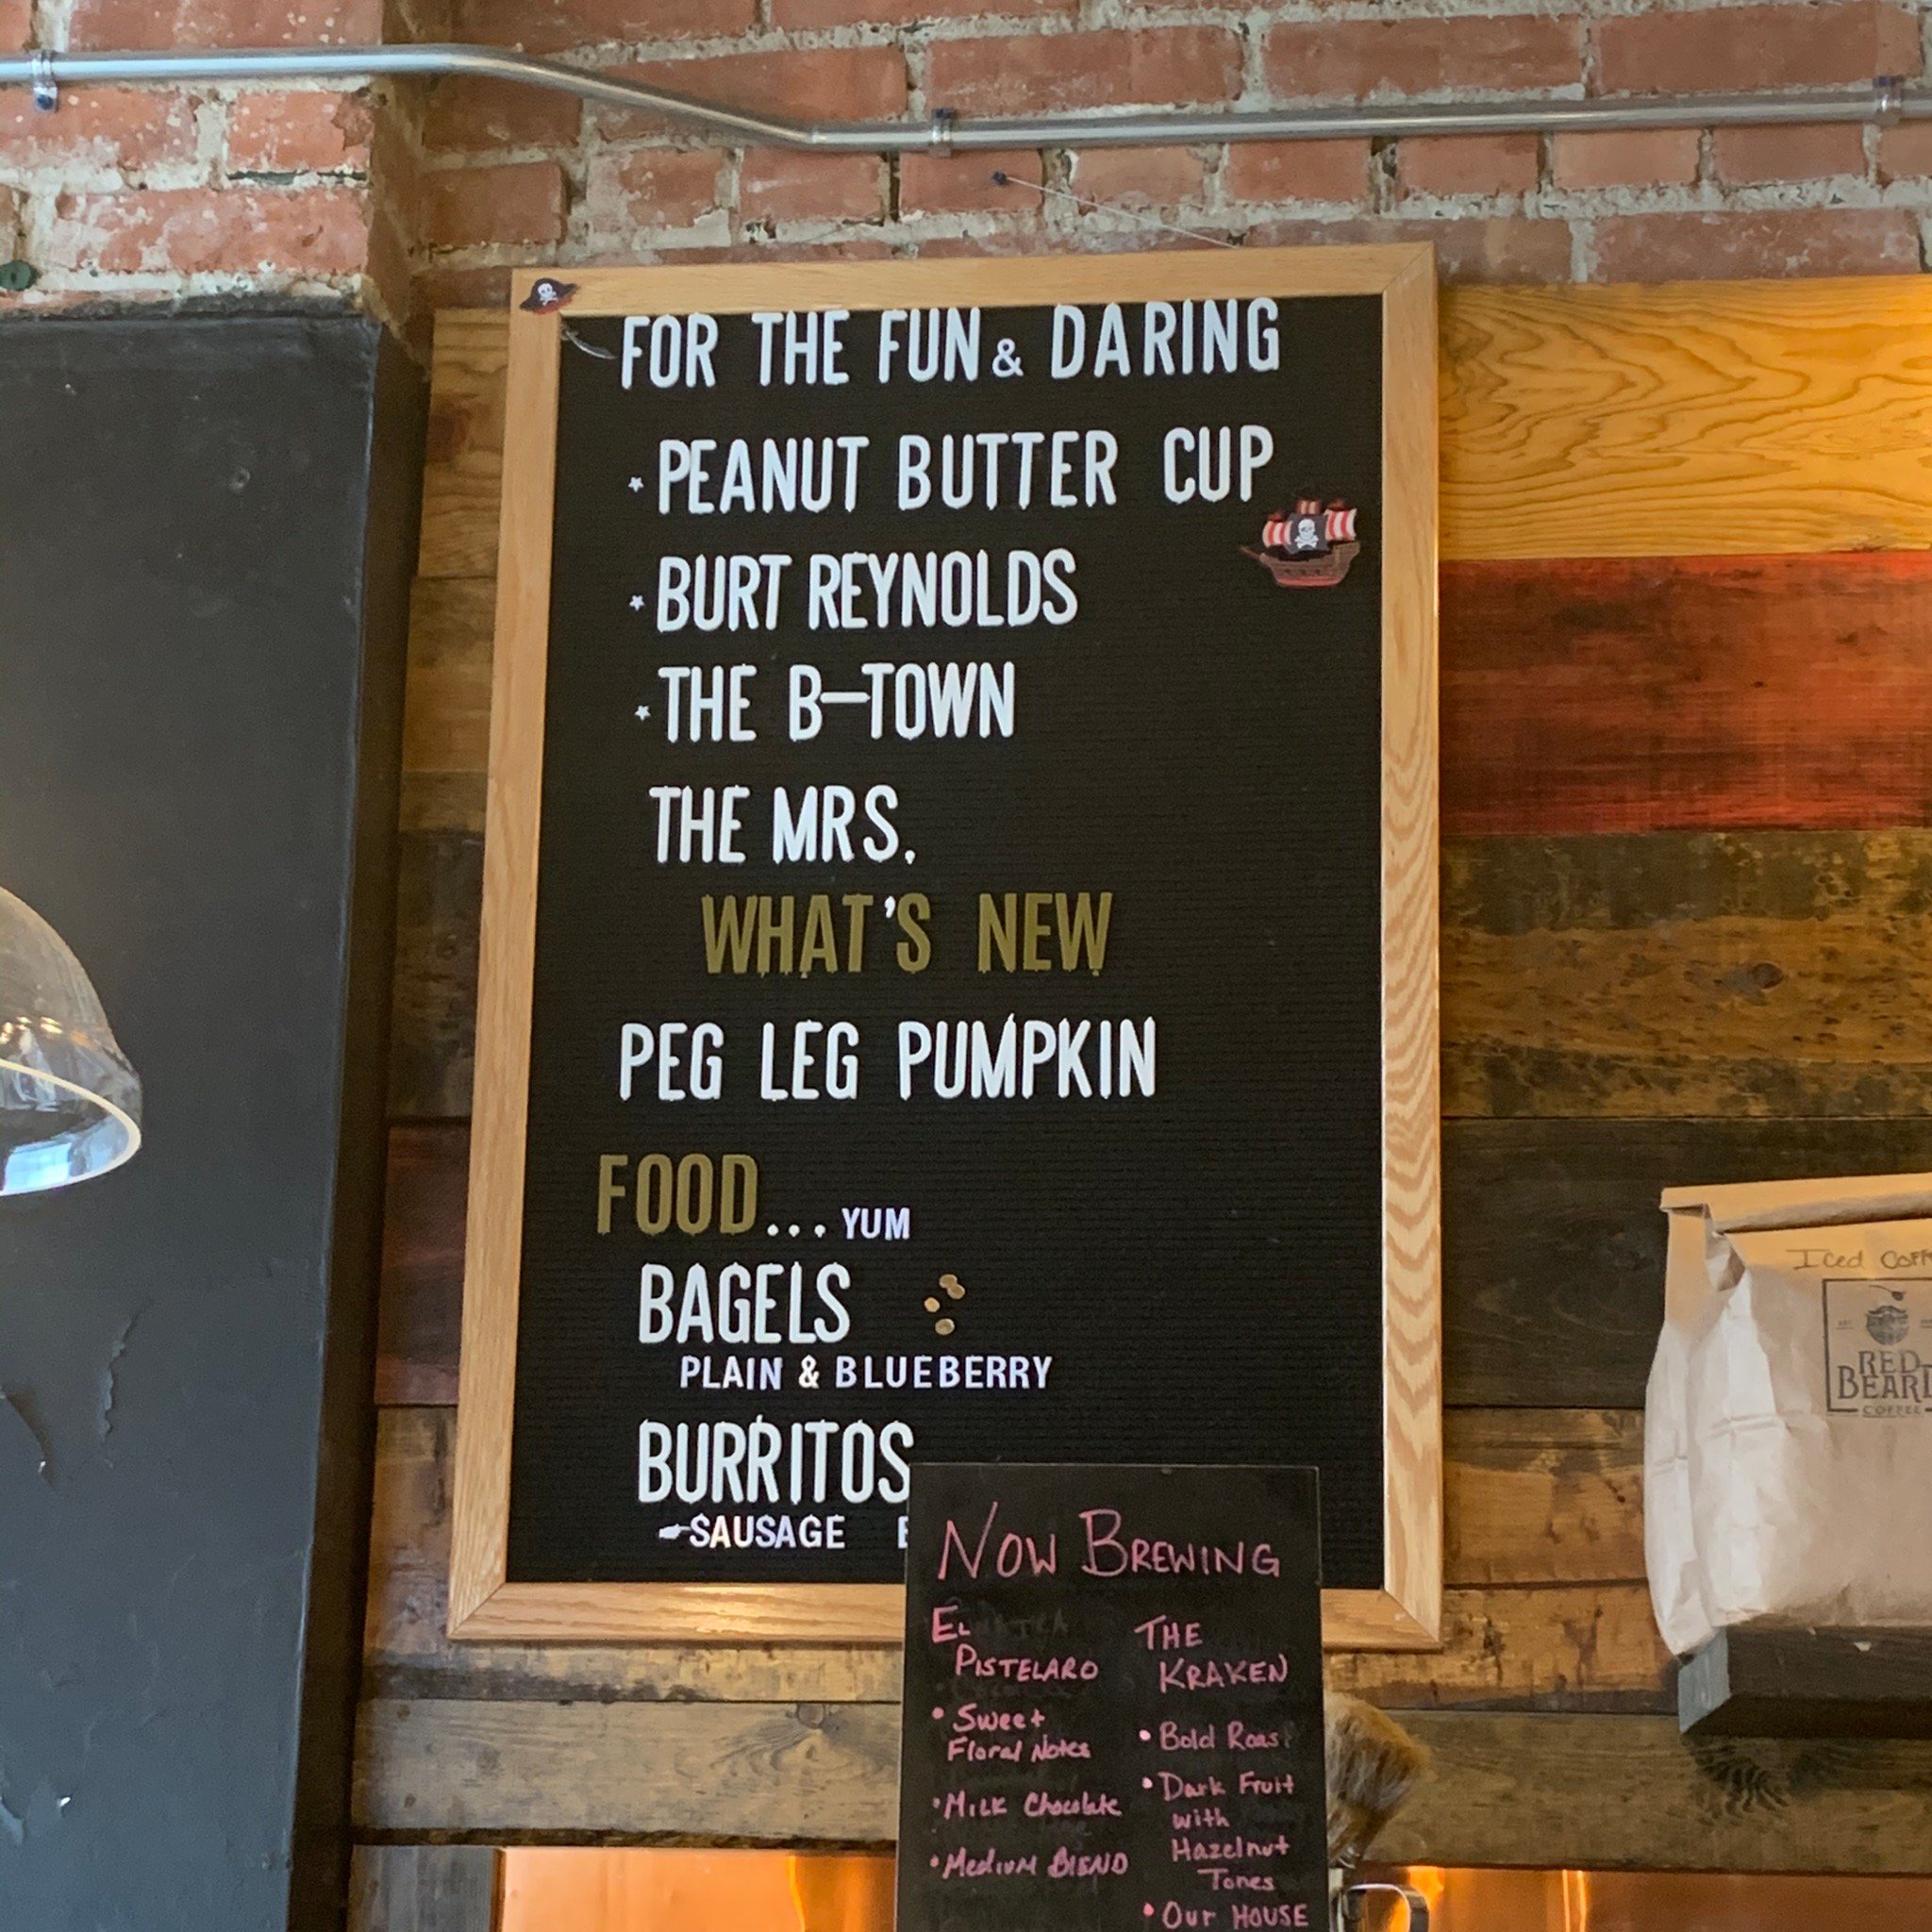 FOR THE FUN & DARING
PEANUT BUTTER CUP
BURT REYNOLDS
THE B-TOWN
THE MRS.
WHAT'S NEW
PEG LEG PUMPKIN
FOOD... YUM
BAGELS
PLAIN & BLUEBERRY
BURRITOS
SAUSAGE
NOW BREWING
EL
PISTELARO
• Sweet
Floral Notes
• MILK Chocolate
• MEDIUM BLEND
THE
KRAKEN
• Bold Roast
• Dark Fruit
with
Hazelnut
Tones
• Our HOUSE
Iced
RED
BEARD
COFFEE